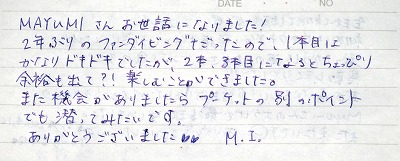 DATE NO
MAYUMI さん お世話になりました!
2年ぶりの ファンダイビングだったので、1本目は
かなりドキドキでしたが、2本、3本目になるとちょっぴり
余裕も出て?! 楽しむことができました。
また機会がありましたら プーケットの別のポイント
でも潜ってみたいです。
ありがとうございました M.I.